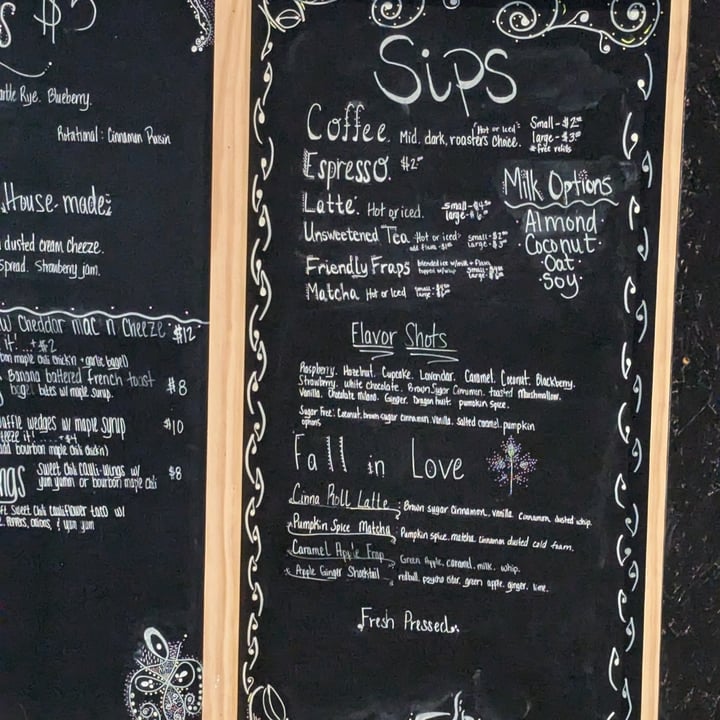 $5
Rye. Blueberry.
Rotational: Cinnamon Raisin
House-made:
dusted cream cheeze.
spread. Strawberry jam.
w/ Cheddar mac n Cheeze $12
it! ...+$2
maple chili chick'n + garlic bagel)
Banana battered French toast $8
bagel bites w/ maple syrup.
waffle wedges w/ maple syrup $10
it! .....+$4
bourbon maple chili chick'n)
sweet chili cauli-wings w/ $8
yum yumm or bourbon maple chili
sweet chili cauliflower taco w/
onions, & yum yum
Sips
Coffee. Mid, dark, roasters choice. (Hot or Iced) Small-$2
large-$3
*free refills
Espresso. $2
Milk Options
Almond
Coconut
Oat
Soy
Latte. Hot or iced. small-$4
large-$6
Unsweetened Tea Hot or iced small-$2
large-$3
Friendly Fraps blended ice w/milk + flavor
topped w/whip small-
large-
Matcha Hot or Iced small-
large-
Flavor Shots
Raspberry. Hazelnut. Cupcake. Lavendar. Caramel. Coconut. Blackberry.
Strawberry. white chocolate. Brown Sugar Cinnamon. toasted Marshmallow.
Vanilla. Chocolate Milano. Ginger. Dragon fruit. pumpkin spice.
Sugar Free: Coconut, brown sugar cinnamon, vanilla, salted caramel, pumpkin
options
Fall in Love
Cinna Roll Latte: Brown sugar Cinnamon, vanilla. Cinnamon dusted whip.
Pumpkin Spice Matcha: Pumpkin spice, matcha, cinnamon dusted cold foam.
Caramel Apple Frap: Green Apple, caramel, milk, whip.
Apple Ginger Shocktail: redbull, psycho cider, green apple, ginger, lime.
Fresh Pressed.